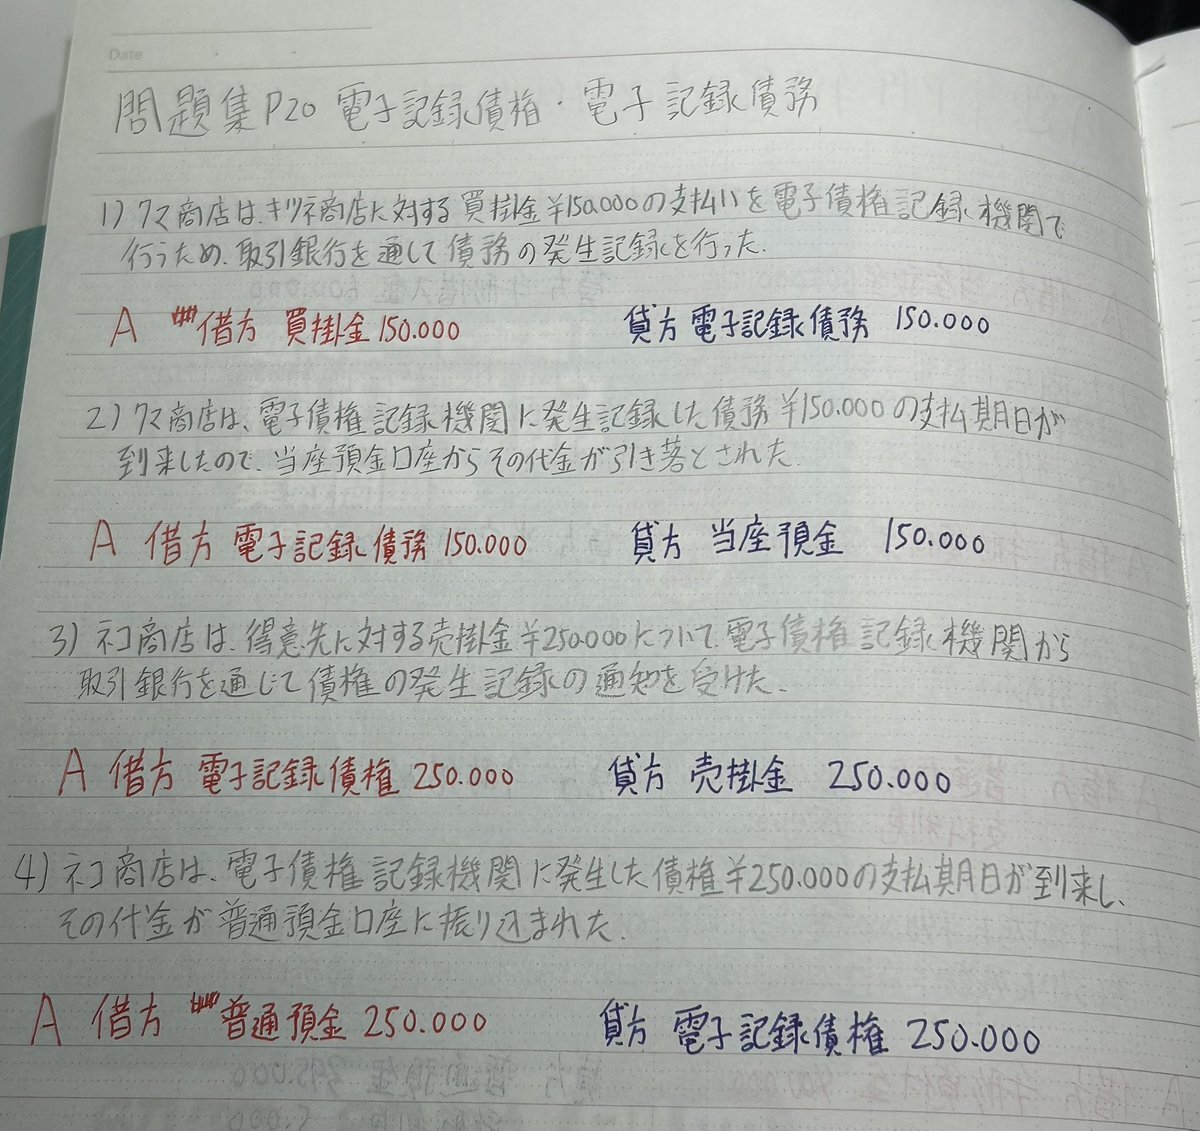 Date
問題集P20 電子記録債権・電子記録債務
1) クマ商店は、キツネ商店に対する買掛金¥150.000の支払いを電子債権記録機関で
行うため、取引銀行を通して債務の発生記録を行った.
A 借方 買掛金 150.000 貸方 電子記録債務 150.000
2) クマ商店は、電子債権記録機関に発生記録した債務¥150.000の支払期日が
到来したので、当座預金口座からその代金が引き落とされた.
A 借方 電子記録債務 150.000 貸方 当座預金 150.000
3) ネコ商店は、得意先に対する売掛金¥250.000について、電子債権記録機関から
取引銀行を通じて債権の発生記録の通知を受けた.
A 借方 電子記録債権 250.000 貸方 売掛金 250.000
4) ネコ商店は、電子債権記録機関に発生した債権¥250.000の支払期日が到来し、
その代金が普通預金口座に振り込まれた.
A 借方 普通預金 250.000 貸方 電子記録債権 250.000